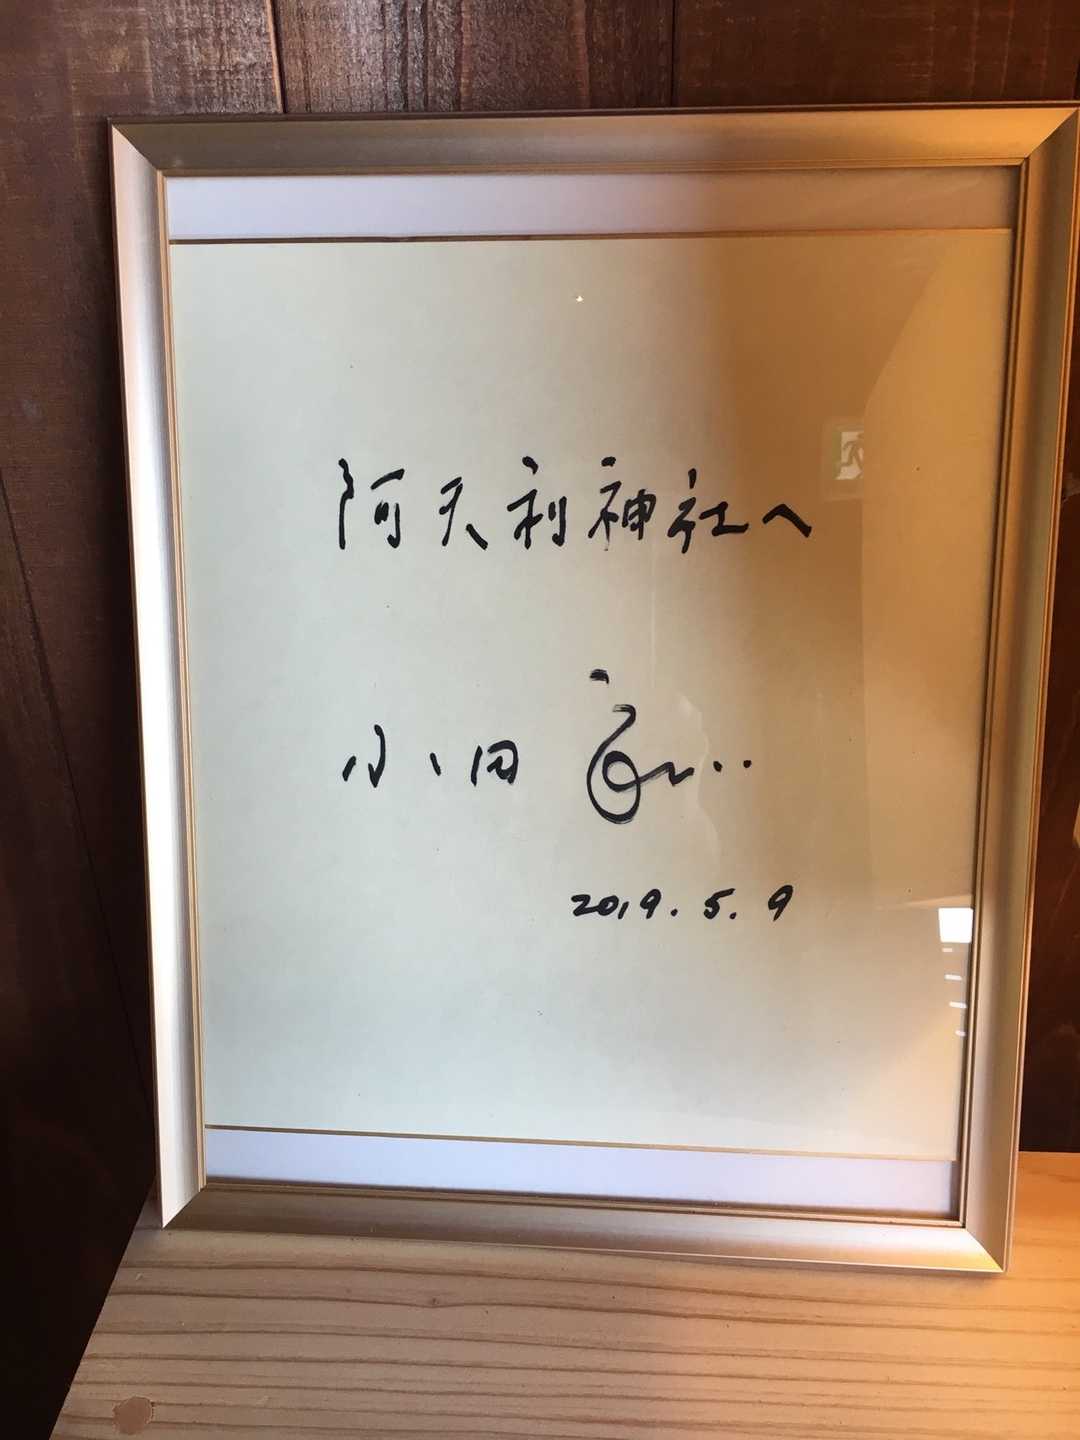 阿天利神社へ
小田
2019.5.9